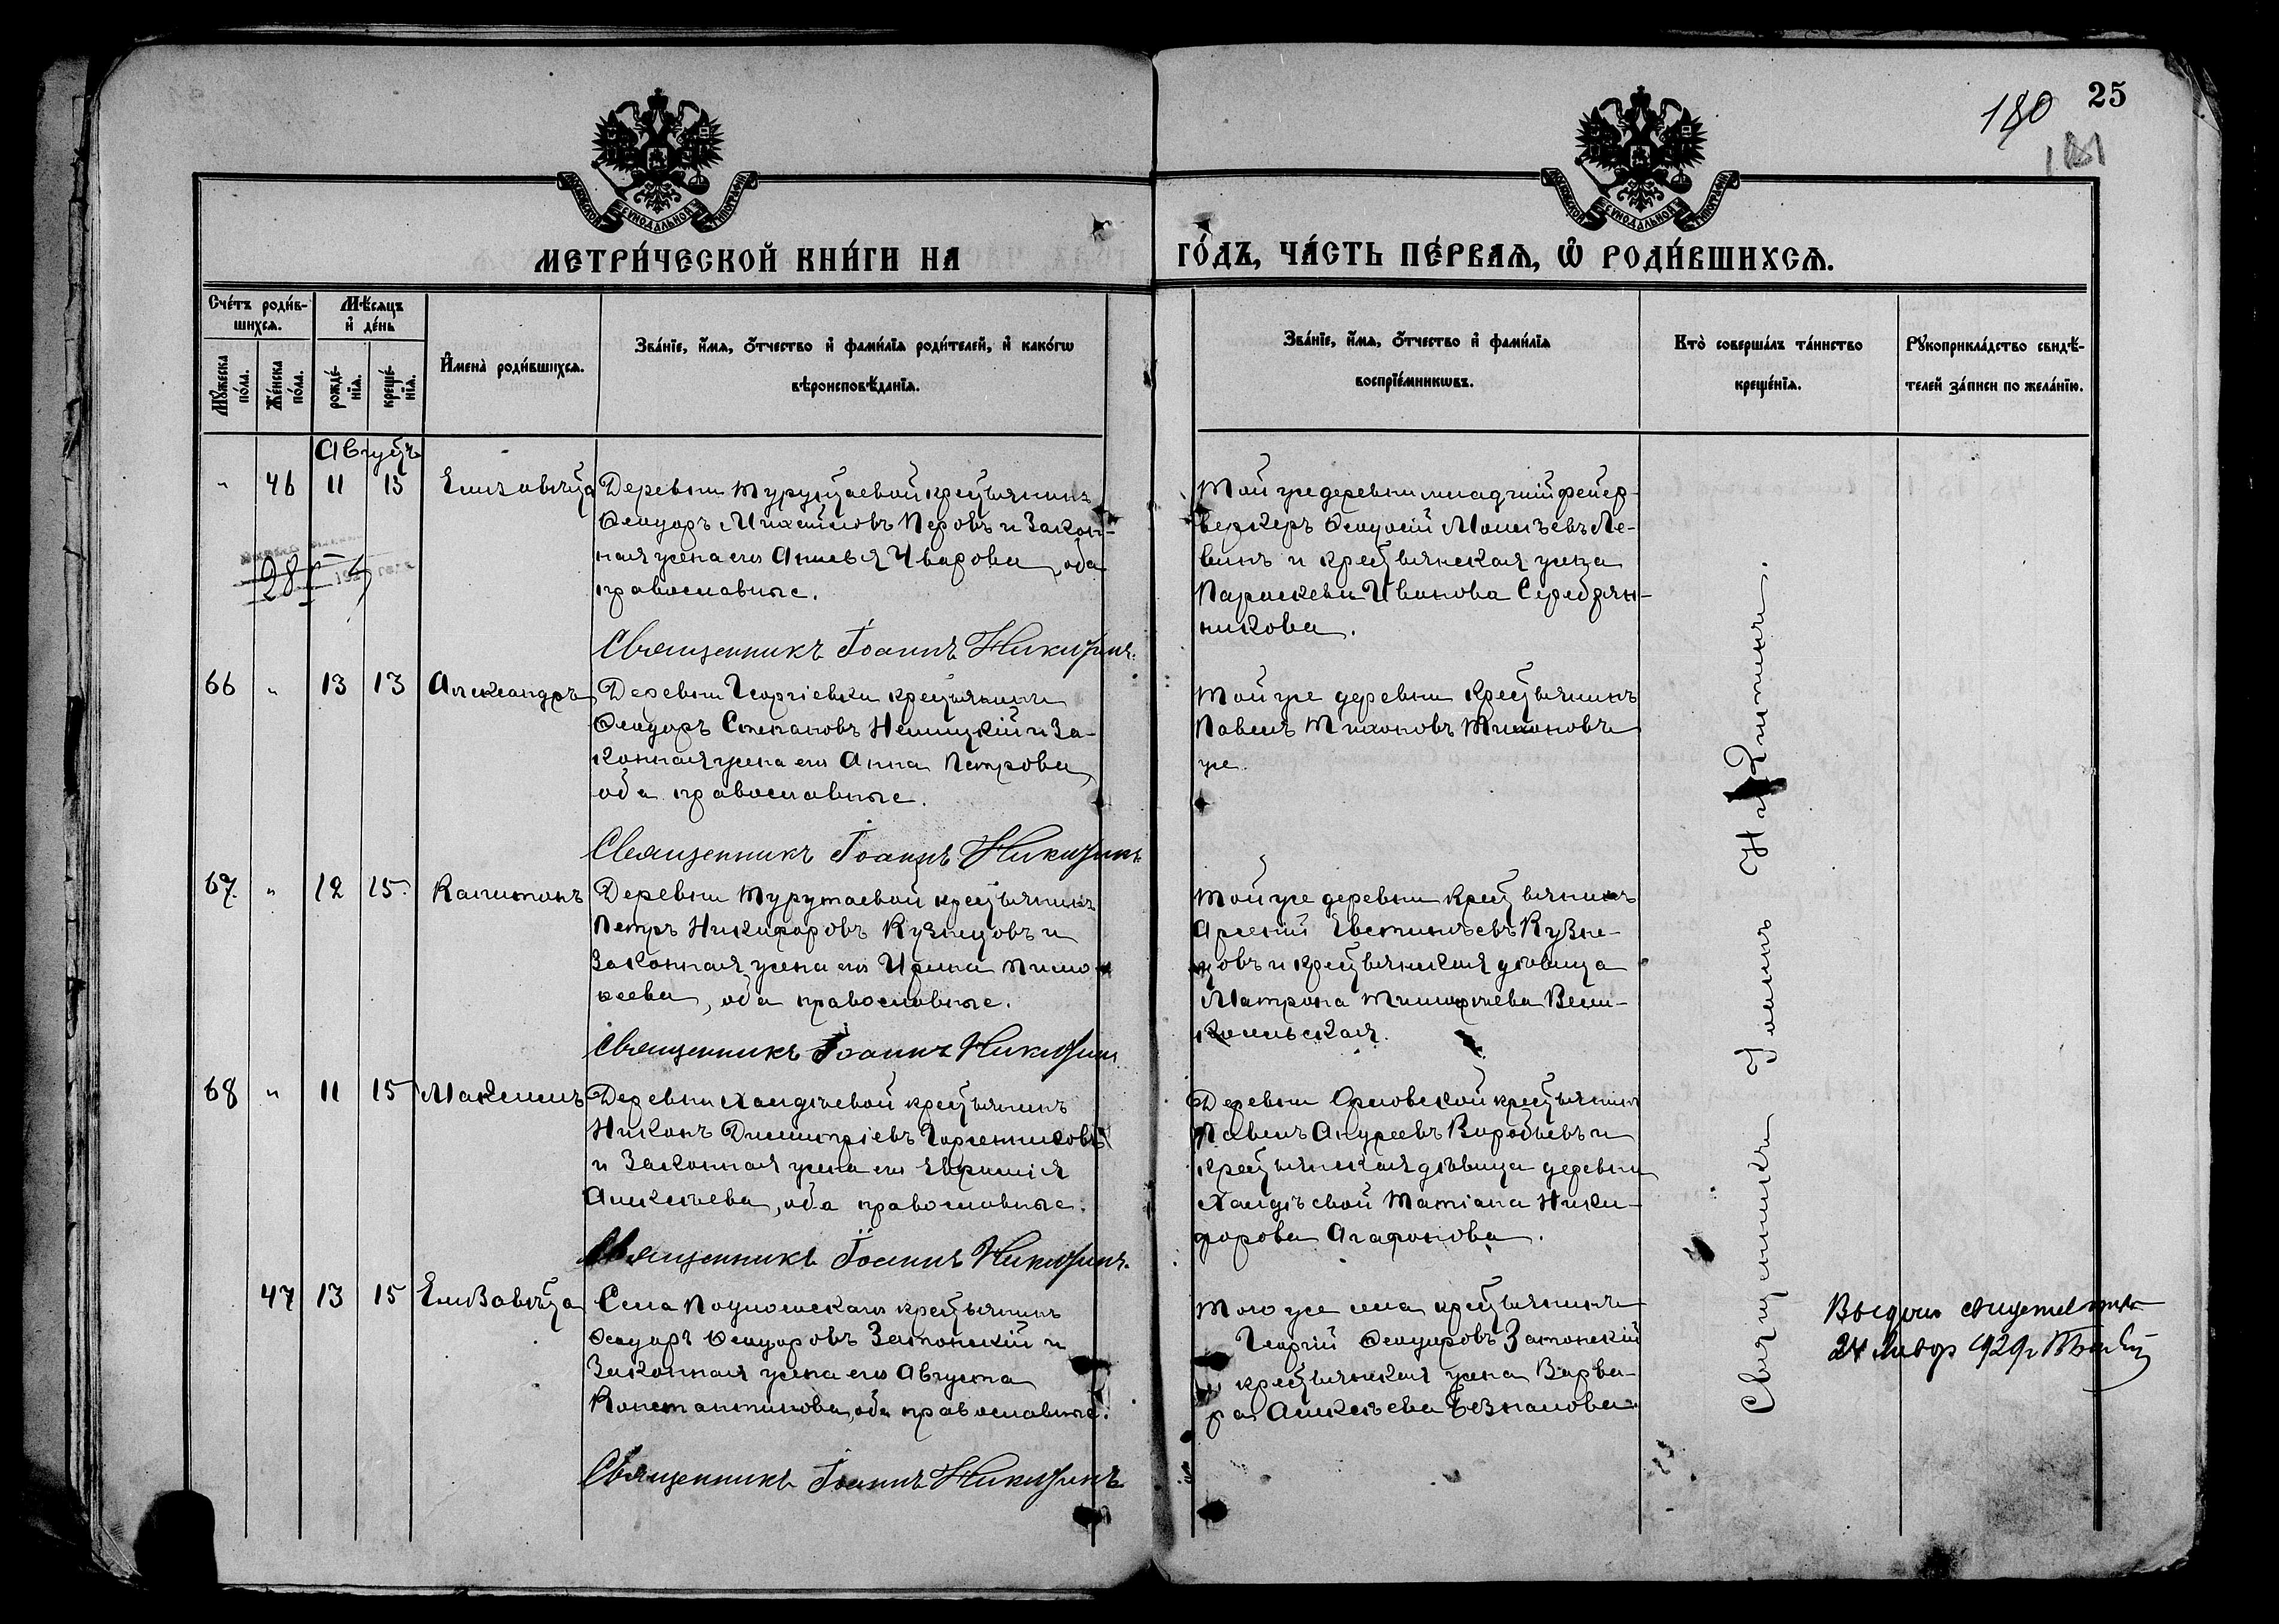 25
180
181
МОСКОВСКОЙ СУНОДАЛЬНОЙ ТИПОГРАФІИ
МОСКОВСКОЙ СУНОДАЛЬНОЙ ТИПОГРАФІИ
МЕТРИ́ЧЕСКОЙ КНИ́ГИ НА
ГО́ДЪ, ЧА́СТЬ ПЕ́РВАѦ, Ѡ҆ РОДИ́ВШИХСѦ.
Сче́тъ роди́в-
шихсѧ.
Мѣ́сѧцъ
и҆ де́нь
Мꙋ́жеска
по́ла.
Же́нска
по́ла.
рожде́-
нїѧ.
креще́-
нїѧ.
И҆мена̀ роди́вшихсѧ.
Зва́нїе, и҆́мѧ, ѻ҆́тчество и҆ фами́лїѧ роди́телей, и҆ како́гѡ
вѣроисповѣ́данїѧ.
Зва́нїе, и҆́мѧ, ѻ҆́тчество и҆ фами́лїѧ
воспрїе́мникѡвъ.
Кто̀ соверша́лъ та́инство
креще́нїѧ.
Рꙋкоприкла́дство свидѣ́-
телей за́писи по жела́нїю.
Августъ
" 46 11 15 Елизавета
Деревни Турутаевой крестьянинъ
Ѳеодоръ Михайловъ Перовъ и закон-
ная жена его Анисія Уварова, оба
православные.
Священникъ Іоаннъ Никитинъ.
Той же деревни младшій фейер-
веркеръ Ѳеодосій Моисѣевъ Ле-
винъ и крестьянская жена
Параскева Иванова Серебрян-
никова.
66 " 13 13 Александръ
Деревни Георгіевки крестьянинъ
Ѳеодоръ Степановъ Немицкій и за-
конная жена его Анна Петрова,
оба православные.
Священникъ Іоаннъ Никитинъ
Той же деревни крестьянинъ
Павелъ Тихоновъ Тихоновъ
же.
67. " 12 15 Капитонъ
Деревни Турутаевой крестьянинъ
Петръ Никифоровъ Кузнецовъ и
законная жена его Ирина Тимо-
ѳеева, оба православные.
Священникъ Іоаннъ Никитинъ
Той же деревни крестьянинъ
Арсеній Евстигнѣевъ Кузне-
цовъ и крестьянская дѣвица
Матрона Тимоѳеева Вели-
косельская.
68 " 11 15 Максимъ
Деревни Халдѣевой крестьянинъ
Никонъ Димитріевъ
и законная жена его Евфимія
Алексѣева, оба православные.
Священникъ Іоаннъ Никитинъ.
Деревни Орловской крестьянинъ
Павелъ Андреевъ Воробьевъ и
крестьянская дѣвица деревни
Халдѣевой Татіана Ники-
форова Агафонова.
47 13 15 Елизавета
Села крестьянинъ
Ѳеодоръ Ѳеодоровъ Затонскій и
законная жена его Августа
Константинова, оба православные.
Священникъ Іоаннъ Никитинъ
Того же села крестьянинъ
Георгій Ѳеодоровъ Затонскій
крестьянская жена Варва-
ра Алексѣева Безпалова.
Священникъ Іоаннъ Никитинъ.
24 Январ 929г